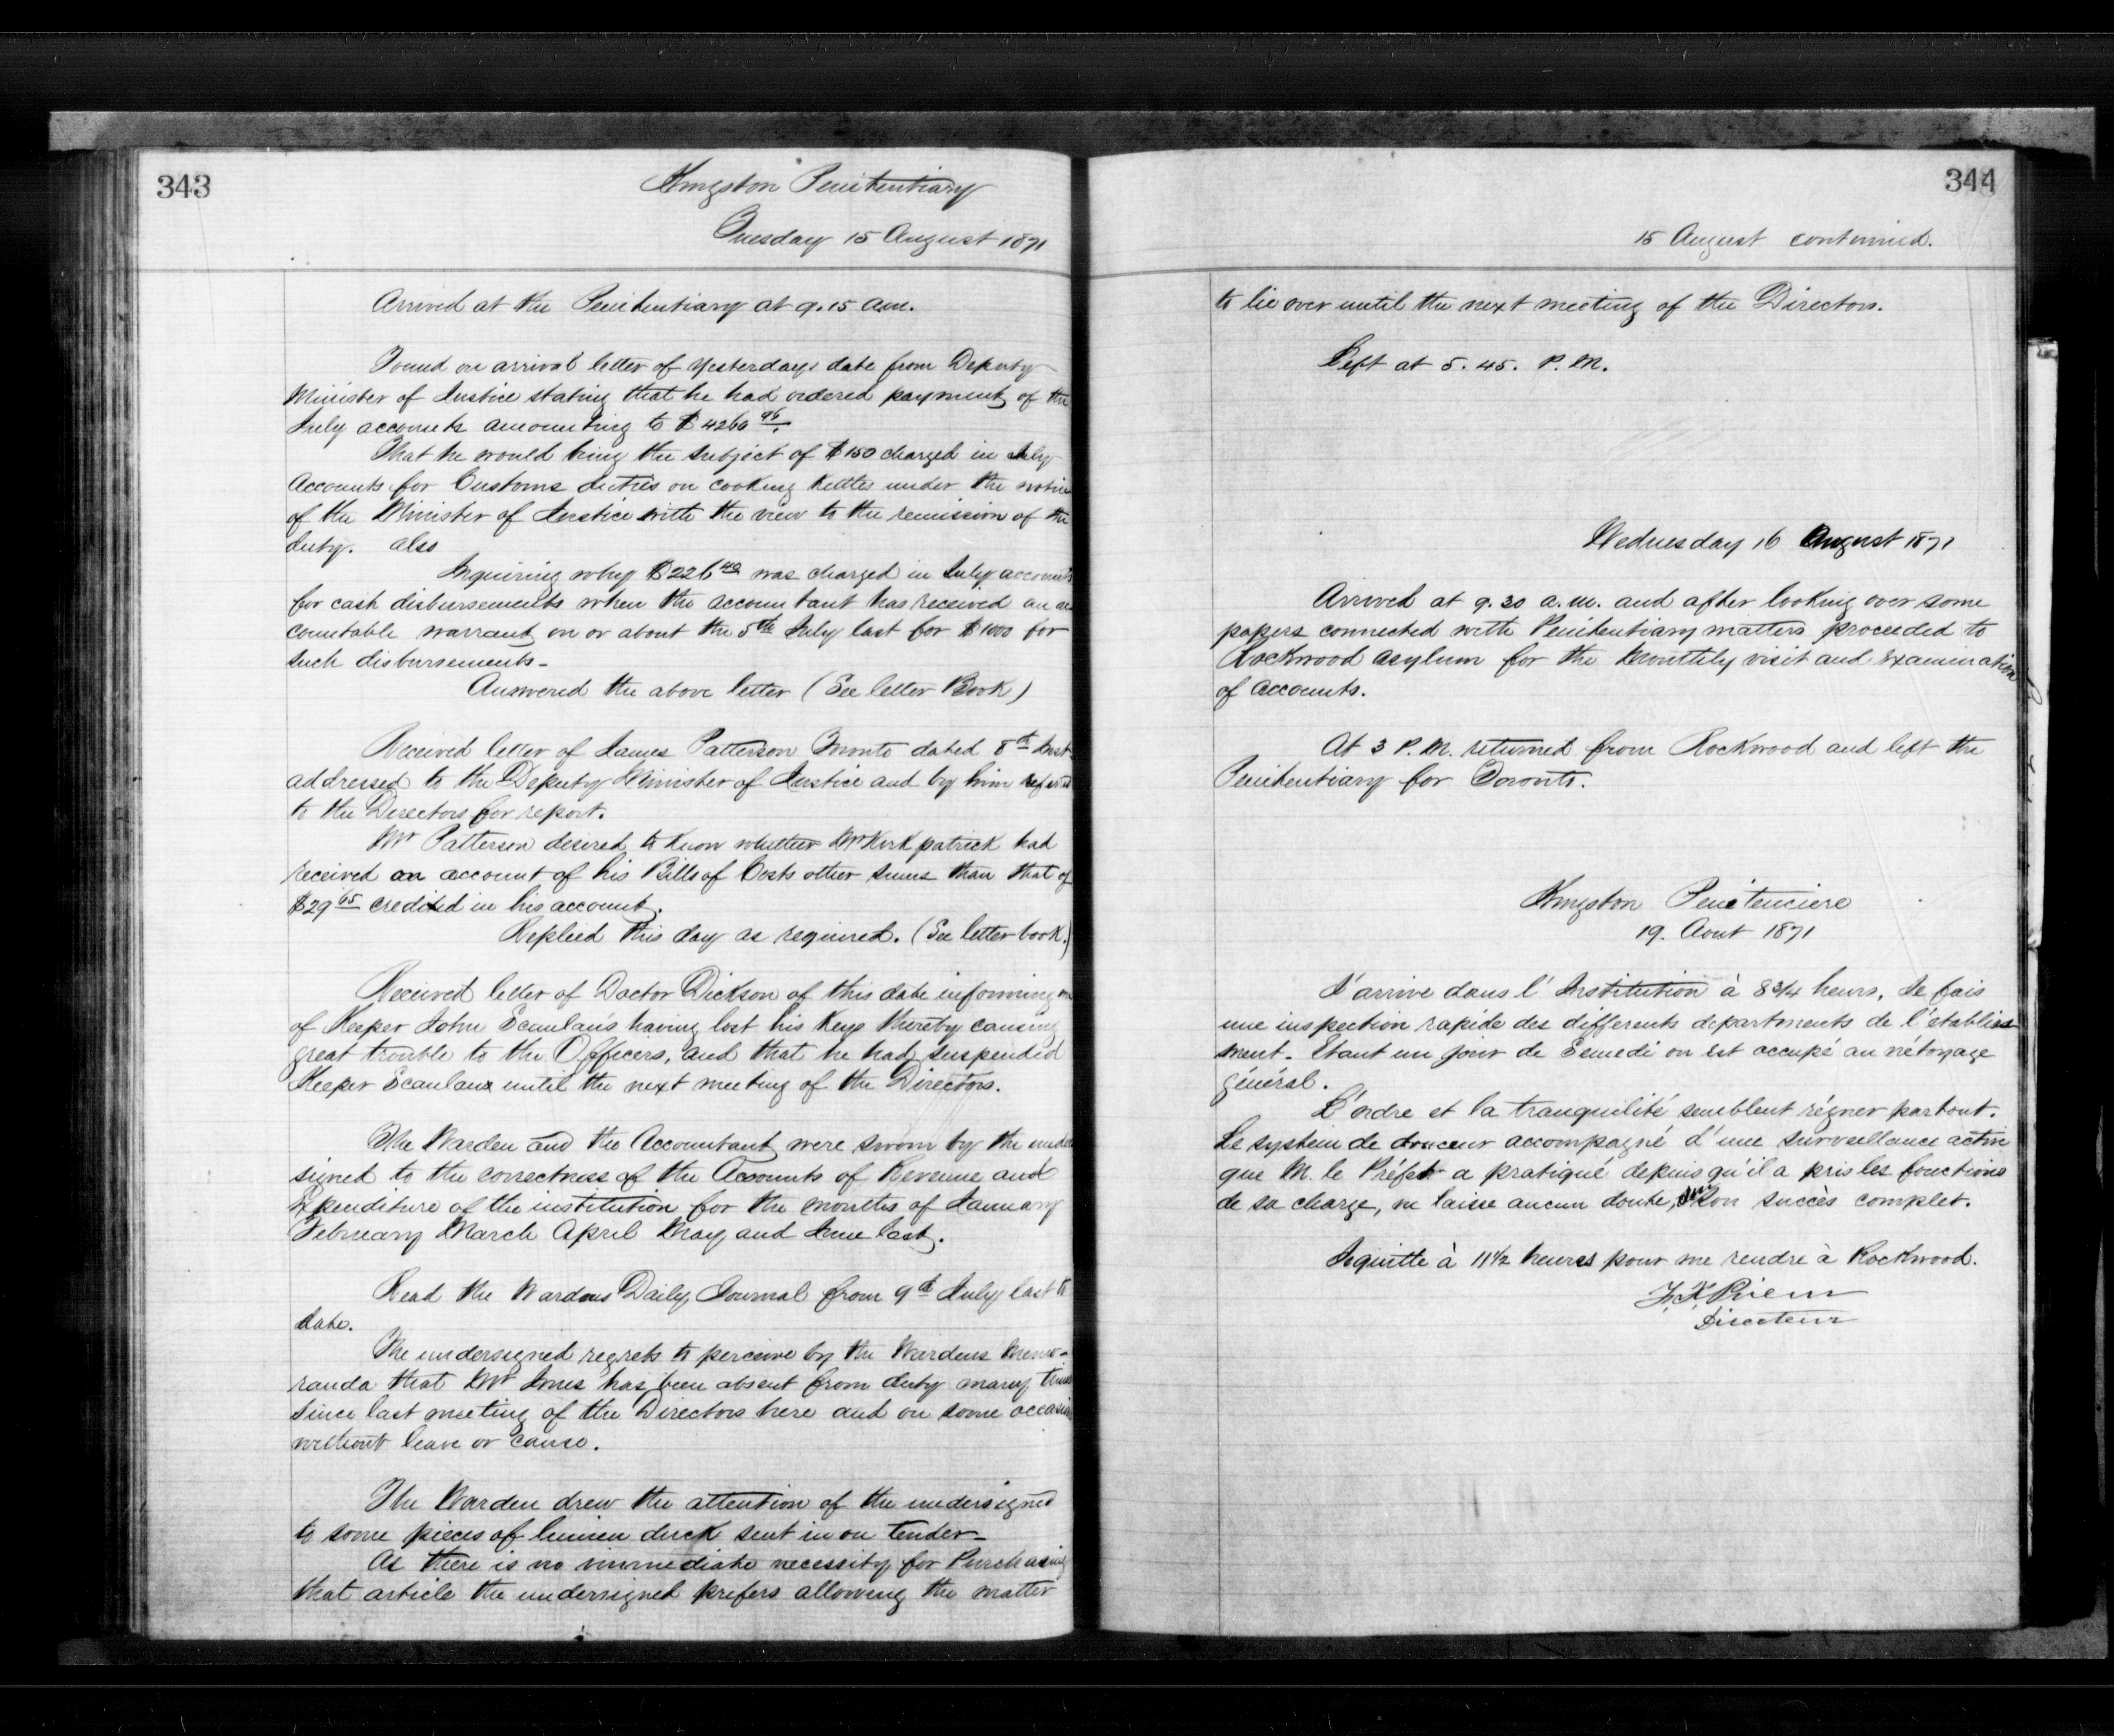 343
Kingston Penitentiary
Tuesday 15 August 1871
Arrived at the Penitentiary at 9.15 a.m.
Found on arrival letter of yesterdays date from Deputy
Minister of Justice stating that he had ordered payment of the
July accounts amounting to $4260 96.
That he would bring the subject of $150 charged in July
Accounts for Customs duties on cooking kettles under the notice
of the Minister of Justice with the view to the remission of the
duty. also
Inquiring why $226 40 was charged in July accounts
for cash disbursements when the accountant has received an ac
countable warrant on or about the 5th July last for $1000 for
such disbursements -
Answered the above letter (See letter Book)
Received letter of James Patterson Toronto dated 8th Inst
addressed to the Deputy Minister of Justice and by him referred
to the Directors for report.
Mr Patterson desired to know whether Mr Kirkpatrick had
received on account of his Bills of Costs other sums than that of
$29 65 credited in his account.
Replied this day as required. (See letter book.)
Received letter of Doctor Dickson of this date informing me
of Keeper John Scanlan's having lost his Keys thereby causing
great trouble to the Officers, and that he had suspended
Keeper Scanlan until the next meeting of the Directors.
The Warden and the Accountant were sworn by the under
signed to the correctness of the Accounts of Revenue and
Expenditure of the institution for the months of January
February March April May and June last.
Read the Wardens Daily Journal from 9th July last to
date.
The undersigned regrets to perceive by the Wardens Memo-
randa that Mr Jones has been absent from duty many times
since last meeting of the Directors here and on some occasions
without leave or cause.
The Warden drew the attention of the undersigned
to some pieces of linnen duck sent in on tender -
As there is no immediate necessity for Purchasing
that article the undersigned prefers allowing the matter
344
15 August continued.
to lie over until the next meeting of the Directors.
Left at 5.45. P.M.
Wednesday 16 August 1871
Arrived at 9.30 a.m. and after looking over some
papers connected with Penitentiary matters proceeded to
Rockwood Asylum for the Monthly visit and Examination
of accounts.
At 3 P.M. returned from Rockwood and left the
Penitentiary for Toronto.
Kingston Penitenciere
19. Aout 1871
J'arrive dans l'Institution à 8 3/4 heurs. Je fais
une inspection rapide des differents departments de l'etabliss
ment. Etant un jour de Semedi on est occupé au nétoyage
général.
L'ordre et la tranquilité semblent régner partout.
Le systein de douceur accompagné d'une surveillance active
que M. le Préfet a pratiqué depuis qu'il a pris les fonctions
de sa charge, ne laisse aucun doute, sur son succès complet.
Je quitte à 11 1/2 heures pour me rendre à Rockwood.
Directeur